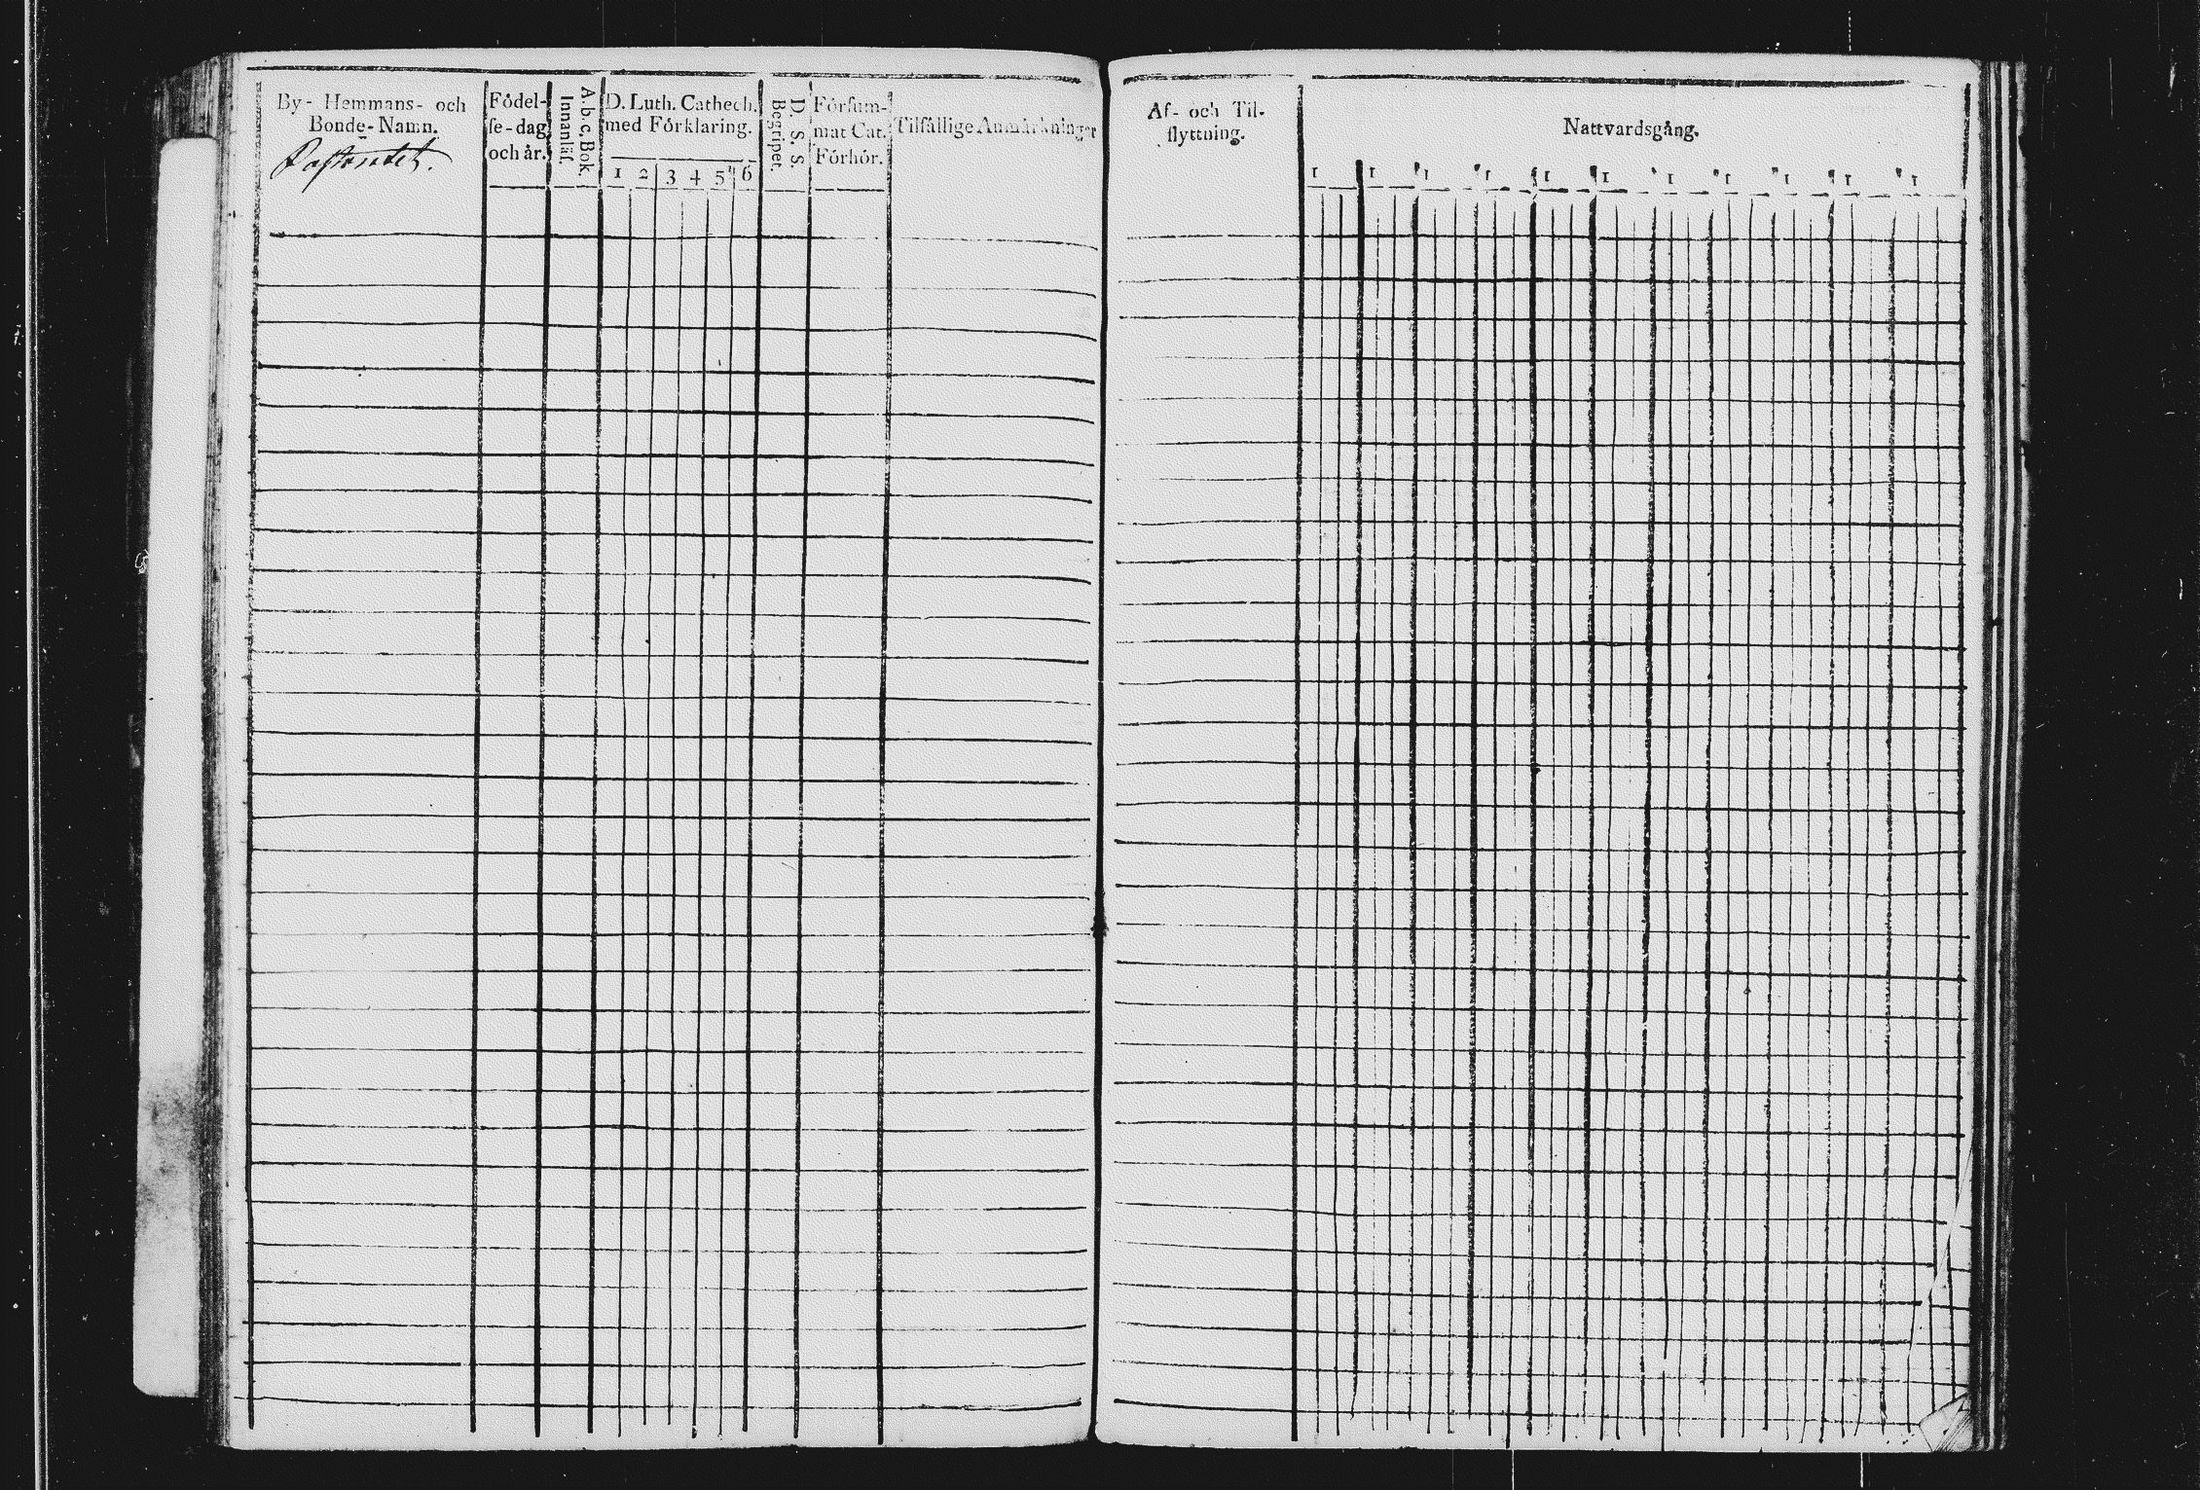 By- Hemmans- och
Bonde-Namn.
Födel-
se-dag
och år.
A. b. c. Bok.
Innanläs.
D. Luth. Cathech.
med Förklaring.
1 2 3 4 5 6
D. S. S.
Begripet.
Försum-
mat Cat.
Förhör.
Tilfällige Anmärkninger
Af- och Til-
flyttning.
Nattvardsgång.
1 1 1 1 1 1 1 1 1 1 1